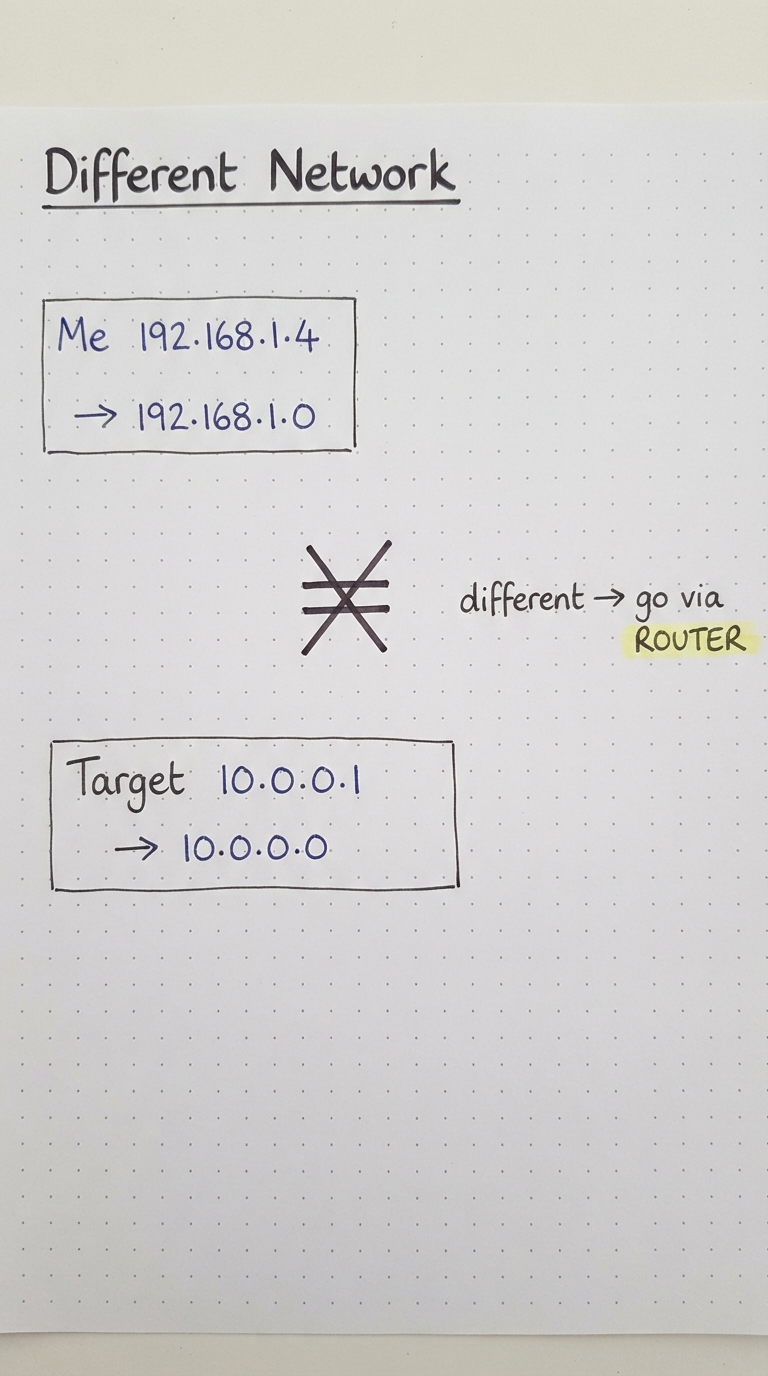 Different Network
Me 192.168.1.4
→ 192.168.1.0
≠ different → go via
ROUTER
Target 10.0.0.1
→ 10.0.0.0